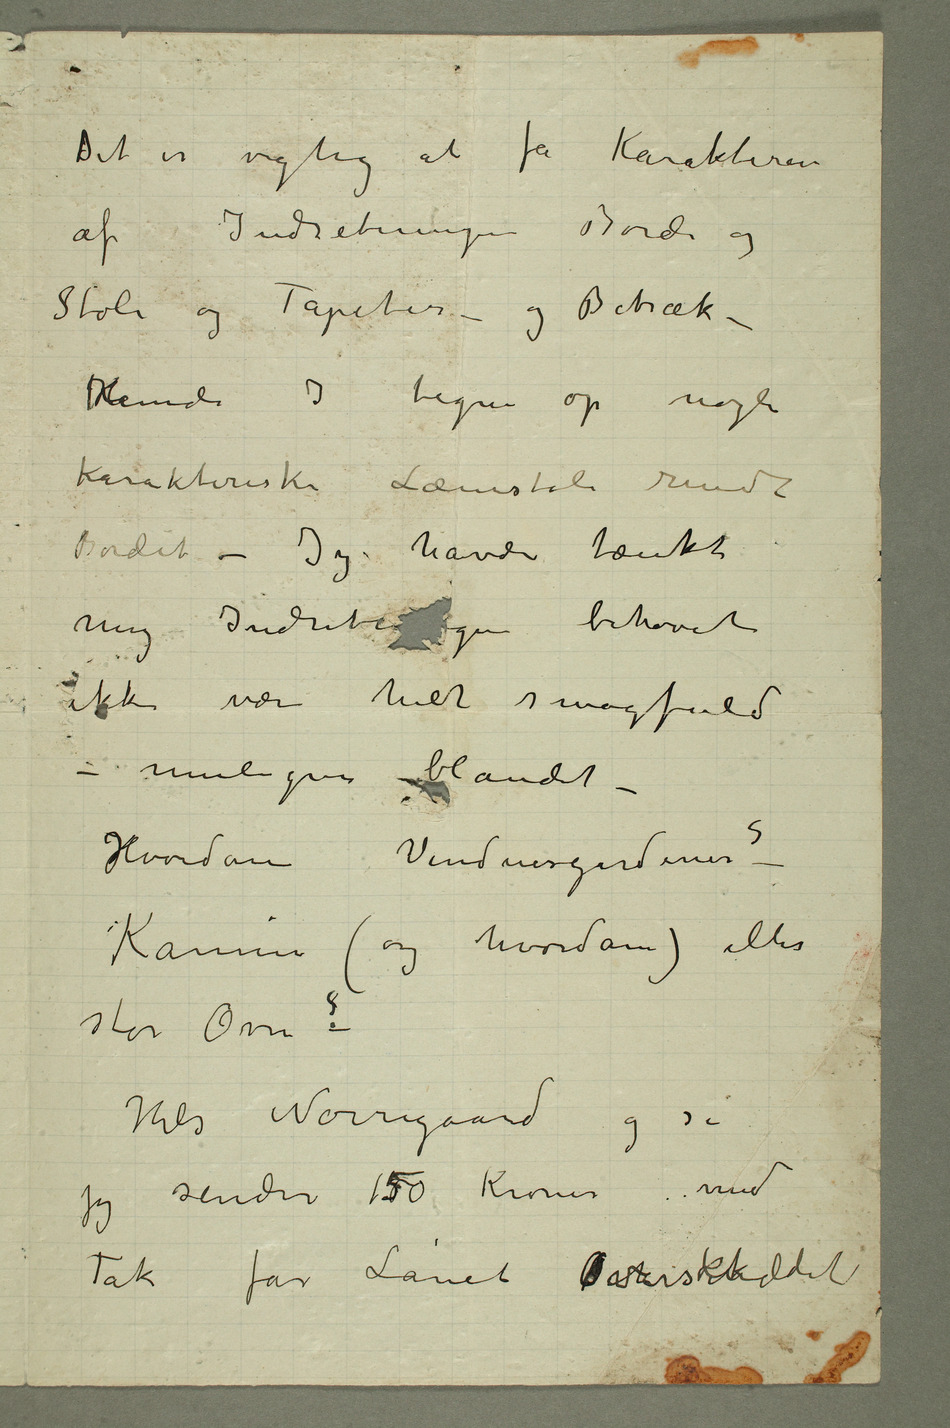 Det er vigtig at få Karakteren
af Indretningen Borde og
Stole og Tapeter – og Betræk –
Kunde I tegne op nogle
karakteriske Lænestole rundt
Bordet – Jeg havde tænkt
mig Indretn gen behøvet
ikke være helt smagfuld
– muligens blandet –
Hvordan Vinduesgardiner? –
Kamin (og hvordan) eller
stor Ovn? –
Hils Nørregaard og si
jeg sender 150 Kroner med
Tak for Lånet Overskuddet